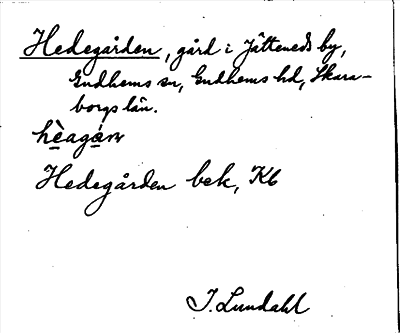 Hedegården, gård i Jätteneds by,
Gudhems sn, Gudhems hd, Skara-
borgs län.
hèagá̱n
Hedegården bek, Kb
I. Lundahl